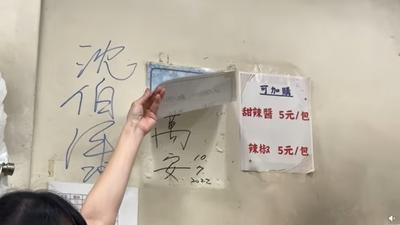 沈
伯
洋
萬
安
10
7
2022
可加購
甜辣醬 5元/包
辣椒 5元/包